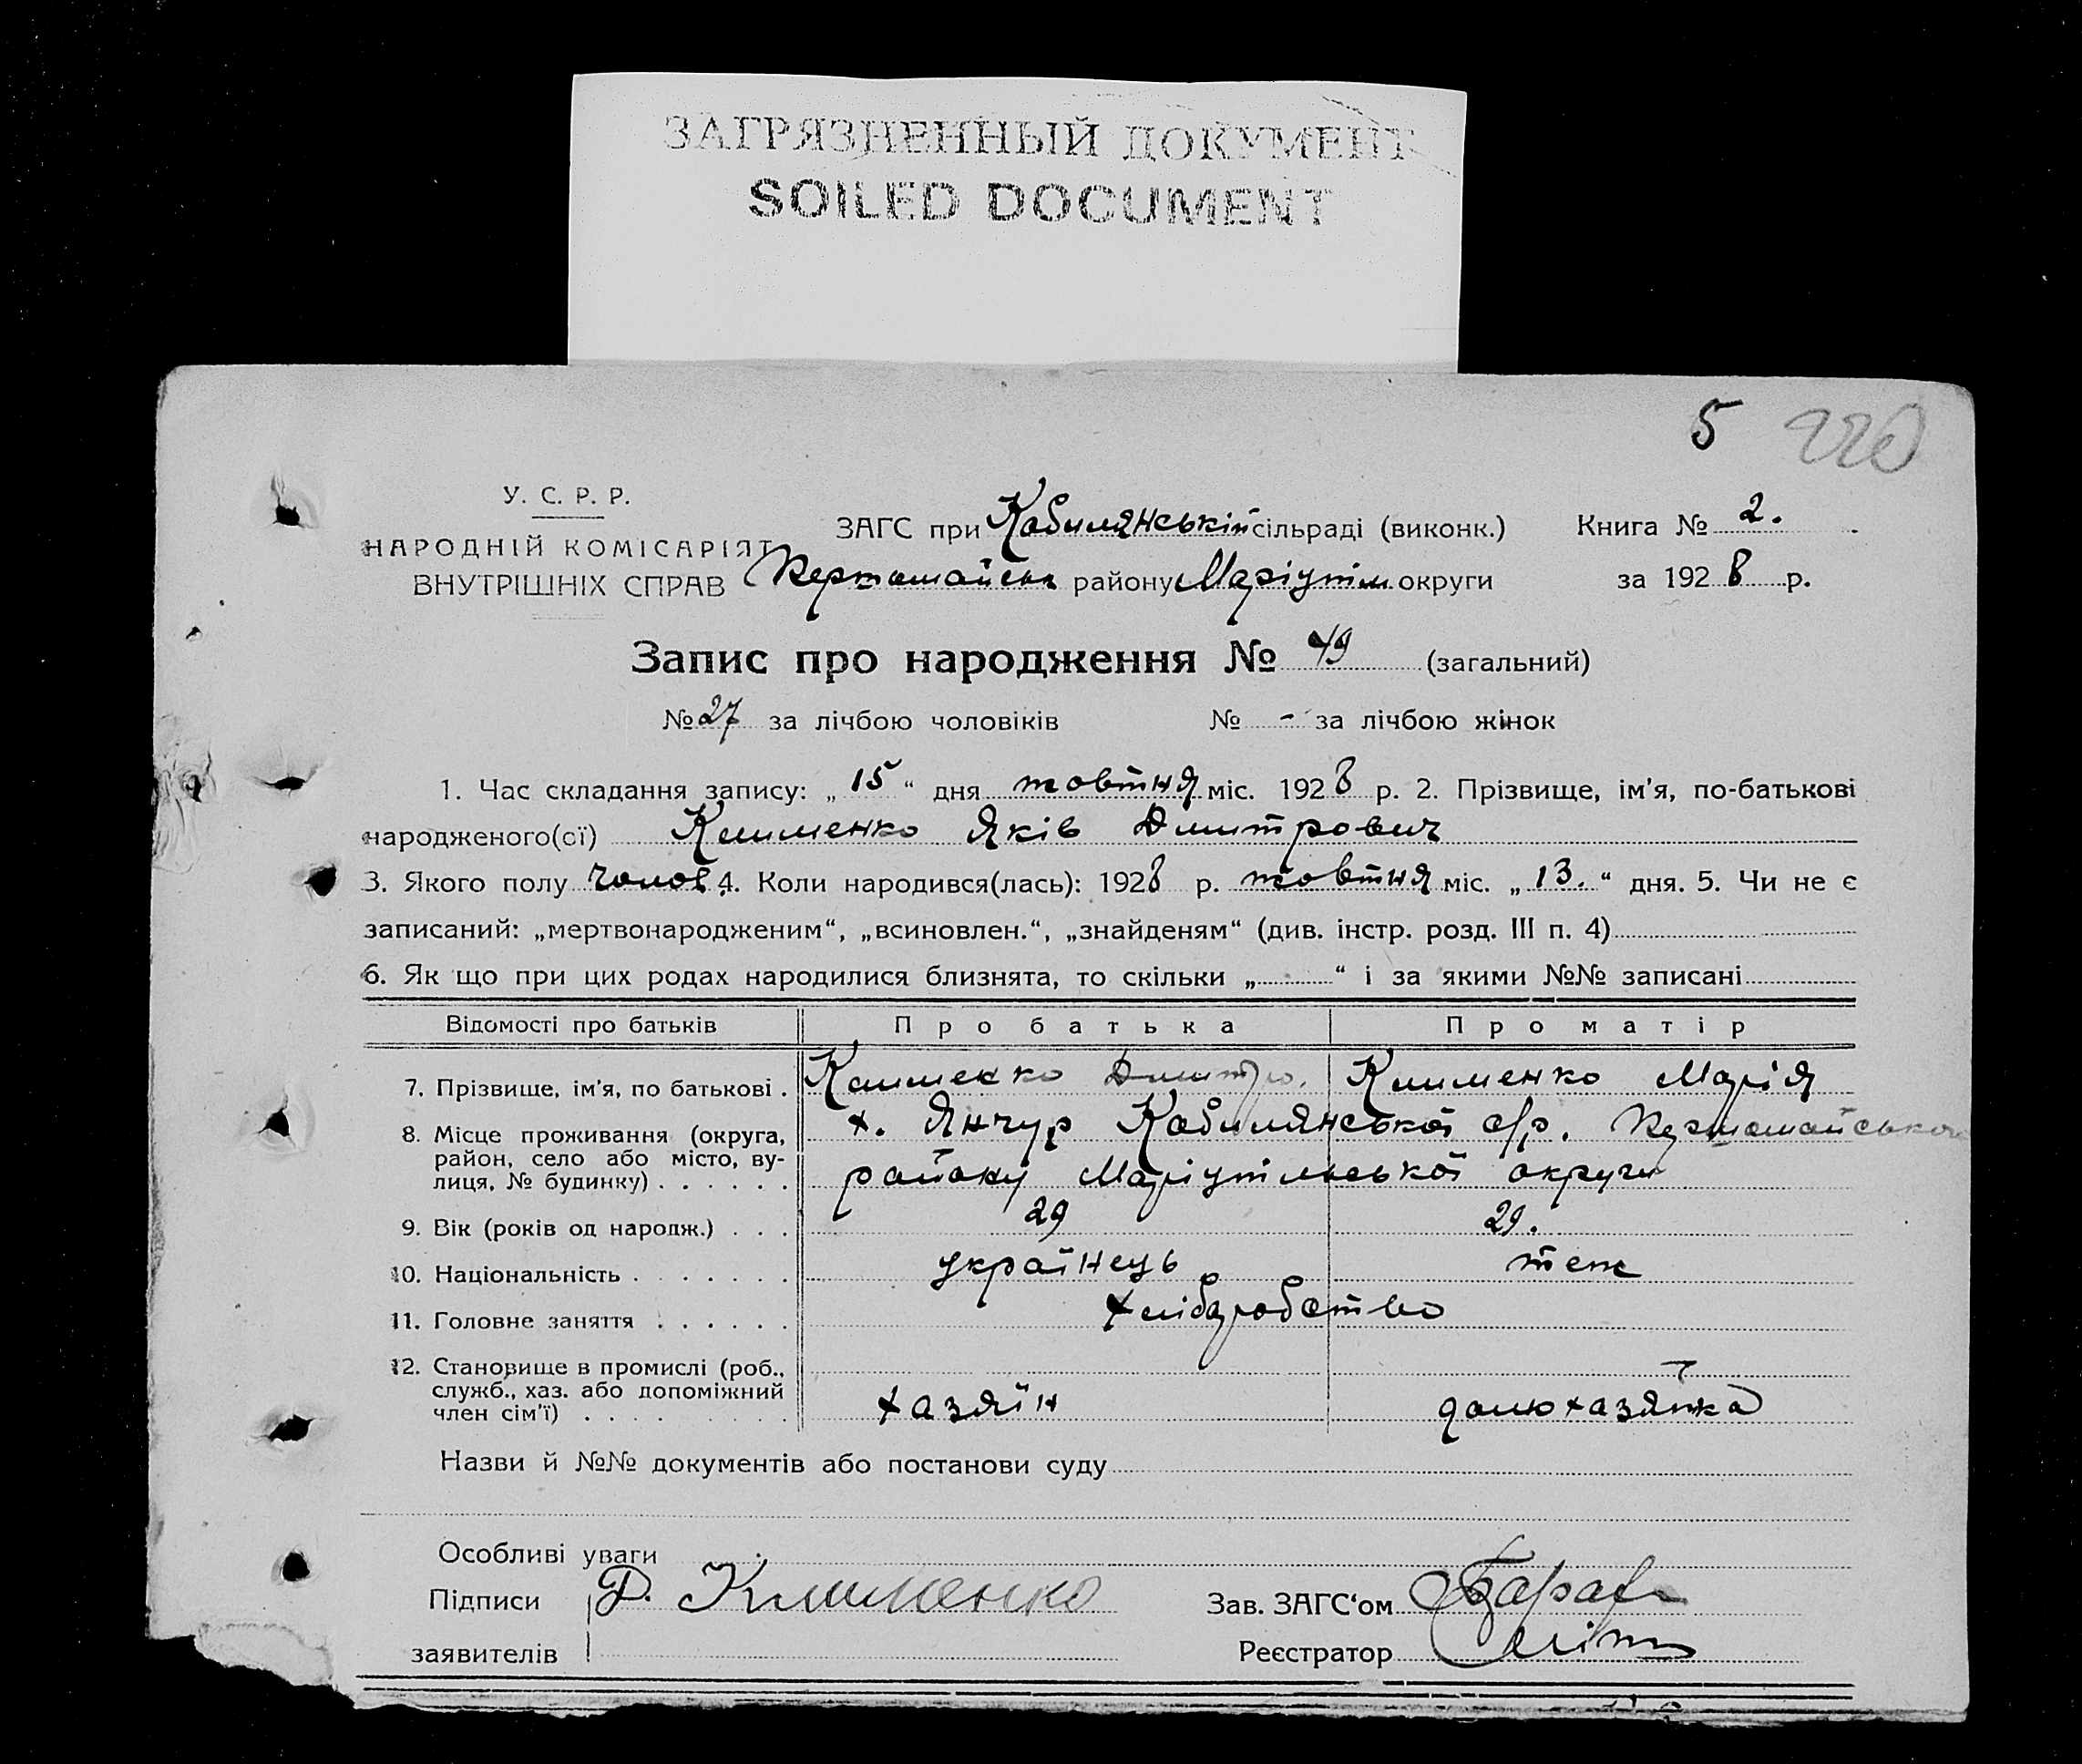 ЗАГРЯЗНЕННЫЙ ДОКУМЕНТ
SOILED DOCUMENT
5 220
У. С. Р. Р.
НАРОДНІЙ КОМІСАРІЯТ
ВНУТРІШНІХ СПРАВ
ЗАГС при Кобилянській сільраді (виконк.) Книга № 2.
району Маріупіл округи за 1928 р.
Запис про народження № 49 (загальний)
№ 27 за лічбою чоловіків № - за лічбою жінок
1. Час складання запису: „15“ дня жовтня міс. 1928 р. 2. Прізвище, ім'я, по-батькові
народженого(сї) Клименко Яків Дмитрович
3. Якого полу чолов. 4. Коли народився(лась): 1928 р. жовтня міс. „13.“ дня. 5. Чи не є
записаний: „мертвонародженим“, „всиновлен.“, „знайденям“ (див. інстр. розд. III п. 4)
6. Як що при цих родах народилися близнята, то скільки „ “ і за якими №№ записані
Відомості про батьків Про батька Про матір
7. Прізвище, ім'я, по батькові . Клименко Дмитро. Клименко Марія
8. Місце проживання (округа, район, село або місто, ву-
лиця, № будинку) . . . . . .
х. Янчур Кобилянської с/р.
району Маріупільської округи
9. Вік (років од народж.) . . . 29 29.
10. Національність . . . . . . . українець теж
11. Головне заняття . . . . . . хліборобство
12. Становище в промислі (роб.,
служб., хаз. або допоміжний
член сім'ї) . . . . хазяїн домохазяйка
Назви й №№ документів або постанови суду
Особливі уваги
Підписи Д. Клименко Зав. ЗАГС'ом
заявителів Реєстратор